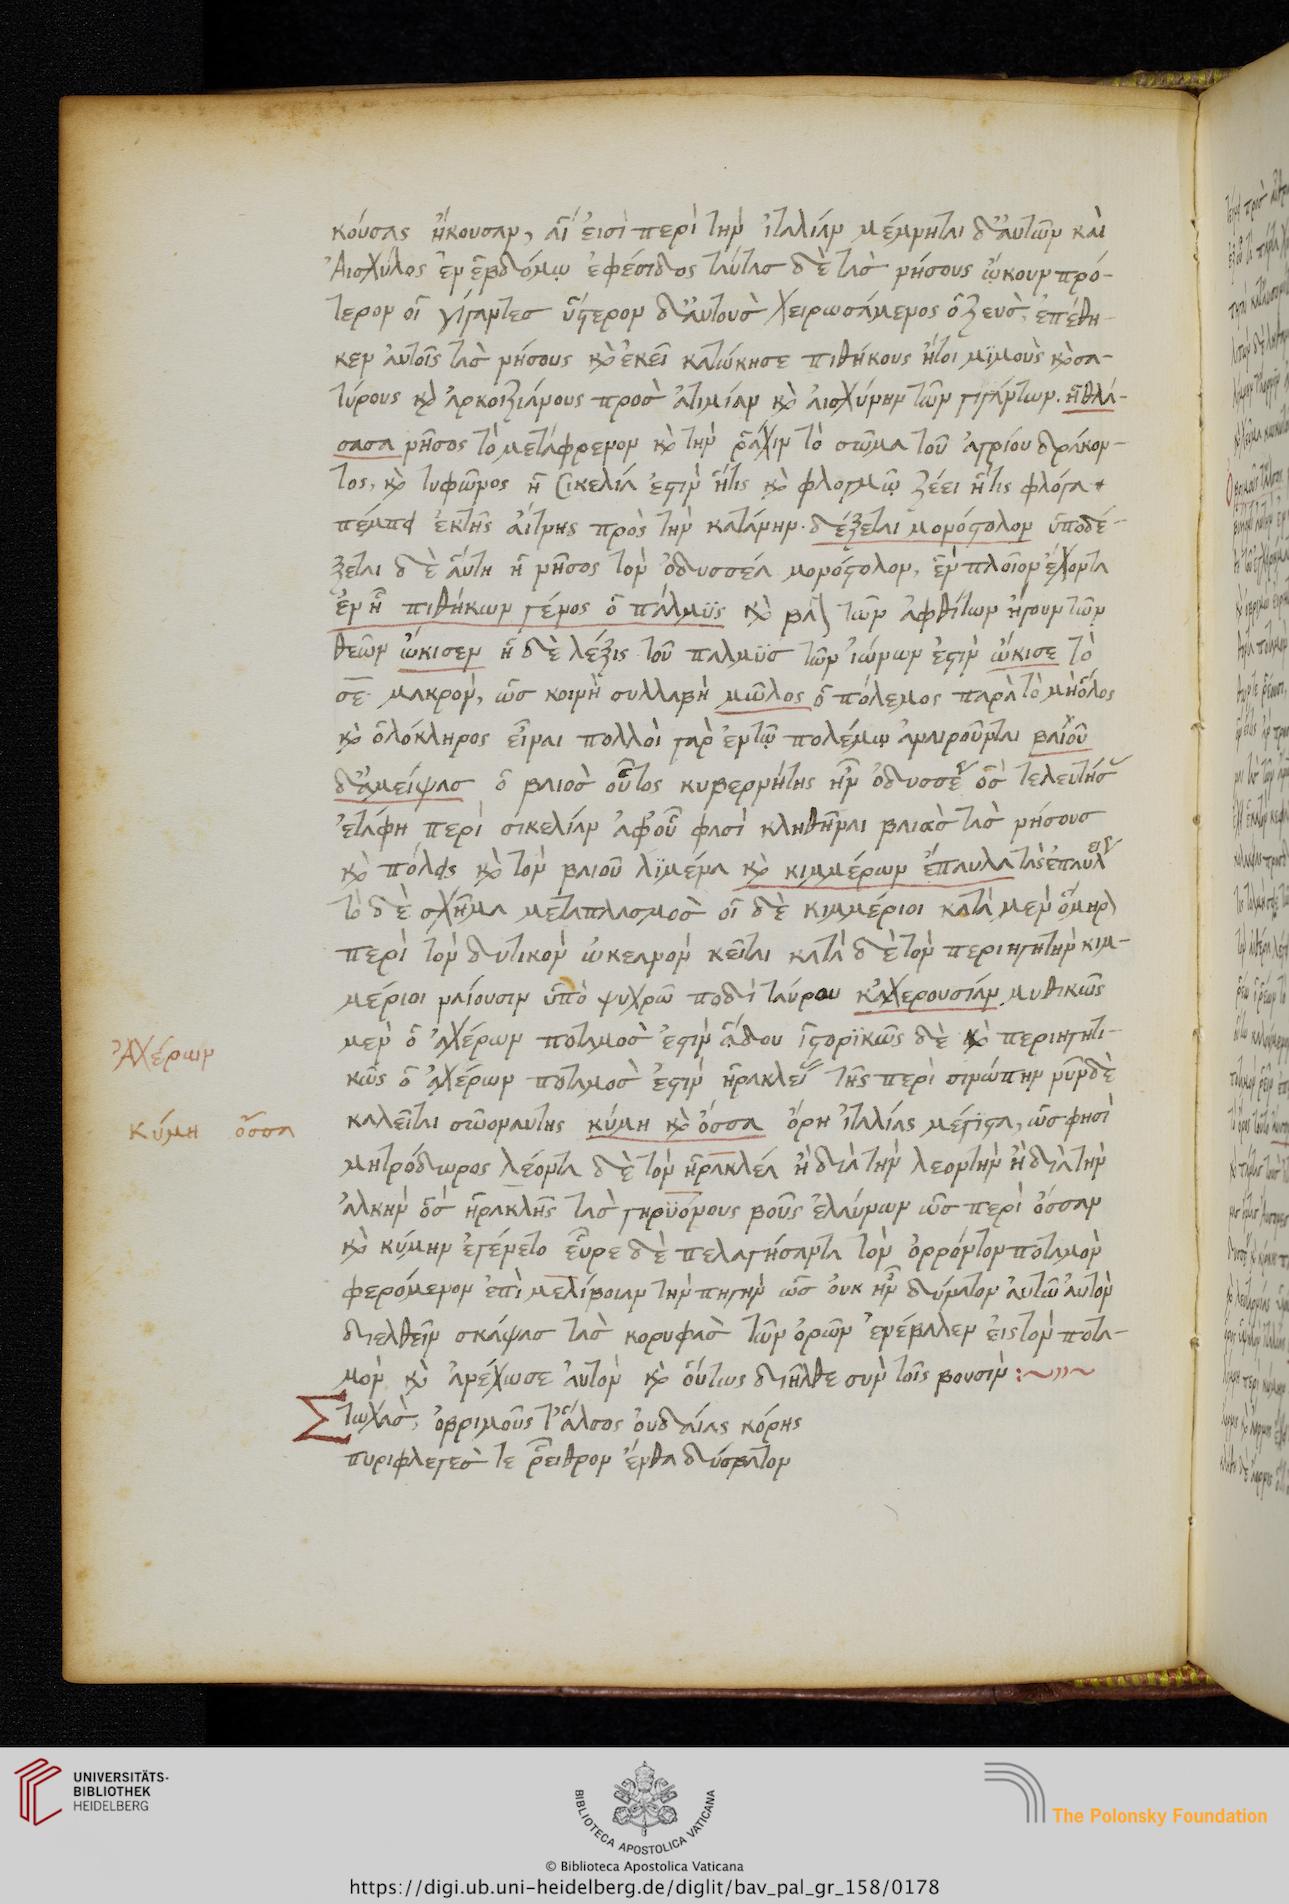 κούσας ἤκουσαν, αἵ εἰσὶ περὶ τὴν ἰταλίαν μέμνηται δ' ἀυτῶν καὶ
Ἀισχύλος ἐν ἑβδόμῳ ἐφέσιδος ταύτας δὲ τὰς νήσους ᾤκουν πρό-
τερον οἱ γίγαντες ὕστερον δ' ἀυτοὺς χειρωσάμενος ὁ ζεὺς, ἐπέθη-
κεν ἀυτοῖς τὰς νήσους κὶ ἐκεῖ κατώκησε πιθήκους ἤτοι μϊμοὺς κὶ σα-
τύρους κὶ ἀρκοιζιάνους πρὸς ἀτιμίαν κὶ ἀισχύνην τῶν γιγάντων. ἡ θλά-
σασα νῆσος τὸ μετάφρενον κὶ τὴν ῥάχιν τὸ σῶμα τοῦ ἀγρίου δράκον-
τος, κὶ τυφῶνος ἡ Σικελία ἐστὶν ἥτις κὶ φλογμῷ ζέει ἥτις φλόγα
πέμπει ἐκ τῆς ἀίτνης πρὸς τὴν κατάνην. δέξεται μονόστολον ὑποδέ-
ξεται δὲ ἅυτη ἡ νῆσος τὸν ὀδυσσέα μονόστολον, ἓν πλοῖον ἔχοντα
ἐν ᾗ πιθήκων γένος ὁ πάλμϋς κὶ βασ τῶν ἀφθίτων ἤγουν τῶν
θεῶν ὤκισεν ἡ δὲ λέξις τοῦ παλμϋς τῶν ἰώνων ἐστὶν ὤκισε τὸ
σε μακρὸν, ὡς κοινὴ συλλαβὴ μῶλος ὁ πόλεμος παρὰ τὸ μὴ ὅλος
κὶ ὁλόκληρος εἶναι πολλοὶ γὰρ ἐν τῷ πολέμῳ ἀναιροῦνται βαίου
δ' ἀμείψας ὁ βαιὸς οὗτος κυβερνήτης ἦν ὀδυσσέως ὃς τελευτήσας
ἐτάφη περὶ σικελίαν ἀφ' οὗ φασὶ κληθῆναι βαιὰς τὰς νήσους
κὶ πόλεις κὶ τὸν βαιοῦ λϊμένα κὶ κιμμέρων ἔπαυλα τὰς ἐπαύλεις
τὸ δὲ σχῆμα μεταπλασμὸς οἱ δὲ κιμμέριοι κατὰ μὲν ὅμηρ
περὶ τὸν δυτικὸν ὠκεανὸν κεῖται κατὰ δὲ τὸν περιηγητὴν κιμ-
μέριοι ναίουσιν ὑπὸ ψυχρῶ ποδὶ ταύρου κ' ἀχερουσίαν μυθικῶς
μὲν ὁ ἀχέρων ποταμὸς ἐστὶν ἅδου ἱστορϊκῶς δὲ κὶ περιηγητι-
κῶς ὁ ἀχέρων ποταμὸς ἐστὶν ἡρακλείας τῆς περὶ σινώπην νῦν δὲ
καλεῖται σοωναυτης κύμη κὶ ὄσσα ὄρη ἰταλίας μέγϊστα, ὥς φησὶ
μητρόδωρος λέοντα δὲ τὸν ἡρακλέα ἢ διὰ τὴν λεοντὴν ἢ διὰ τὴν
ἀλκὴν ὃς ἡρακλῆς τὰς γηρϋόνους βοῦς ἐλαύνων ὡς περὶ ὄσσαν
κὶ κύμην ἐγένετο εὗρε δὲ πελαγήσαντα τὸν ὀρρόντον ποταμὸν
φερόμενον ἐπὶ μελίβοιαν τὴν πηγὴν ὡς ὀυκ ἦν δύνατον ἀυτῶ ἀυτὸν
διελθεῖν σκάψας τὰς κορυφὰς τῶν ὀρῶν ἐνέβαλεν ἐις τὸν ποτα-
μὸν κὶ ἀνέχωσε ἀυτὸν κὶ ὅυτως διῆλθε συν τοῖς βουσίν :~
Στωχὰς, ὀβριμοῦς τ' ἄλσος ὀυδαίας κόρης
πυριφλεγὲς τε ῥεῖθρον ἔνθα δύσβατον
Ἀχέρων
κύμη ὄσσα
UNIVERSITÄTS-
BIBLIOTHEK
HEIDELBERG
BIBLIOTECA APOSTOLICA VATICANA
The Polonsky Foundation
© Biblioteca Apostolica Vaticana
https://digi.ub.uni-heidelberg.de/diglit/bav_pal_gr_158/0178